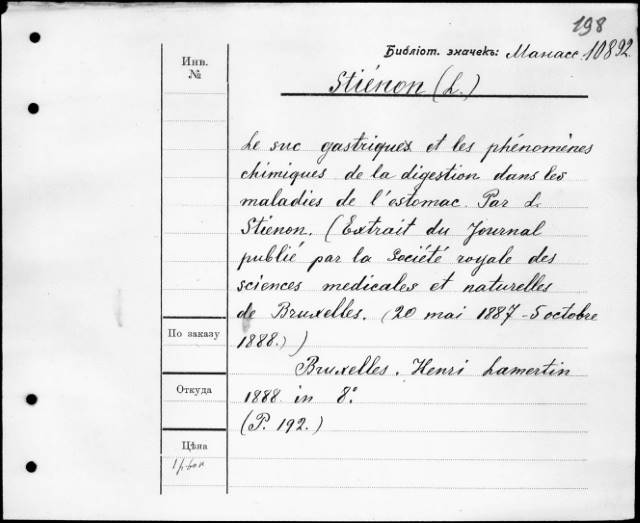 198
Библіот. значекъ: Манасс. 10892.
Инв.
№
Stiénon (L.)
Le suc gastriques et les phénomènes
chimiques de la digestion dans les
maladies de l'estomac. Par L.
Stienon. (Extrait du Journal
publié par la Société royale des
sciences medicales et naturelles
de Bruxelles. (20 mai 1887 - 5 octobre
1888.))
По заказу
Bruxelles. Henri Lamertin
Откуда
1888 in 8.°
(P. 192.)
Цѣна